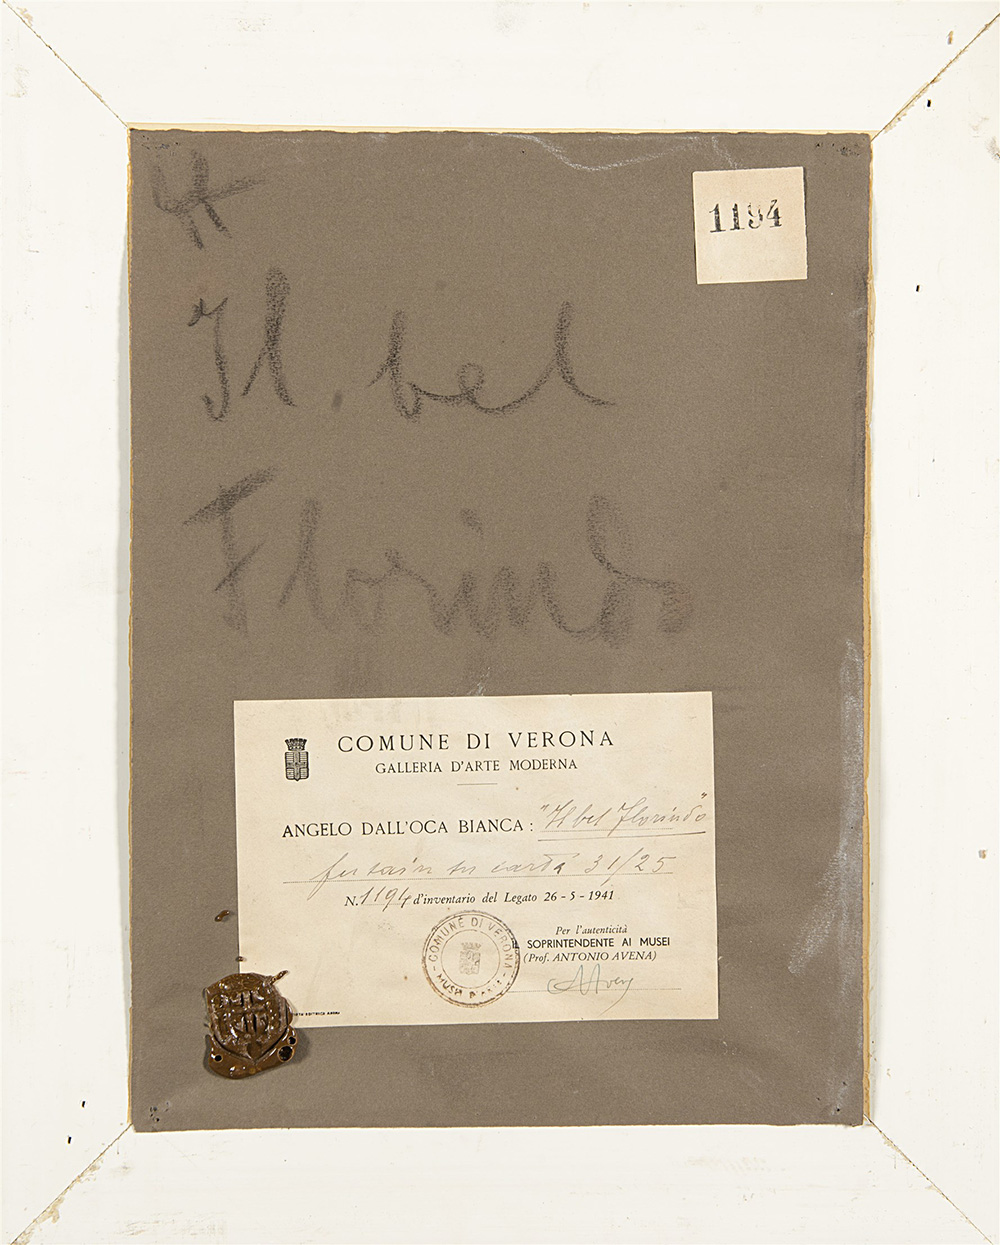 1194
Il bel
Florindo
COMUNE DI VERONA
GALLERIA D'ARTE MODERNA
ANGELO DALL'OCA BIANCA : "Il bel Florindo"
su carta 31/25
N. 1194 d'inventario del Legato 26-5-1941
COMUNE DI VERONA
MUSEI
Per l'autenticità
SOPRINTENDENTE AI MUSEI
(Prof. ANTONIO AVENA)
AAvena